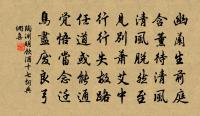 幽蘭生前庭
含薰待清風
清風脫然至
見別蕭艾中
行行失故路
任道或能通
覺悟當念還
鳥盡廢良弓
陶淵明飲酒十七